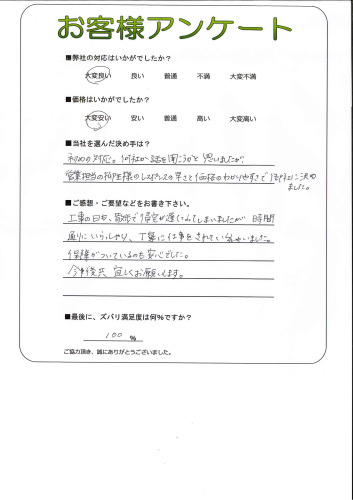 お客様アンケート
■弊社の対応はいかがでしたか？
大変良い 良い 普通 不満 大変不満
■価格はいかがでしたか？
大変安い 安い 普通 高い 大変高い
■当社を選んだ決め手は？
初めの対応。何社か話を聞こうかと思いましたが
営業担当の柳生様のレスポンスの早さと価格のわかりやすさで御社に決め
ました。
■ご感想・ご要望などをお書き下さい。
工事の日も、当方で帰宅が遅くなってしまいましたが 時間
通りにいらっしゃり、丁寧に仕事をされていらっしゃいました。
保障がついているのも安心でした。
今後共 宜しくお願いします。
■最後に、ズバリ満足度は何%ですか？
100 %
ご協力頂き、誠にありがとうございました。